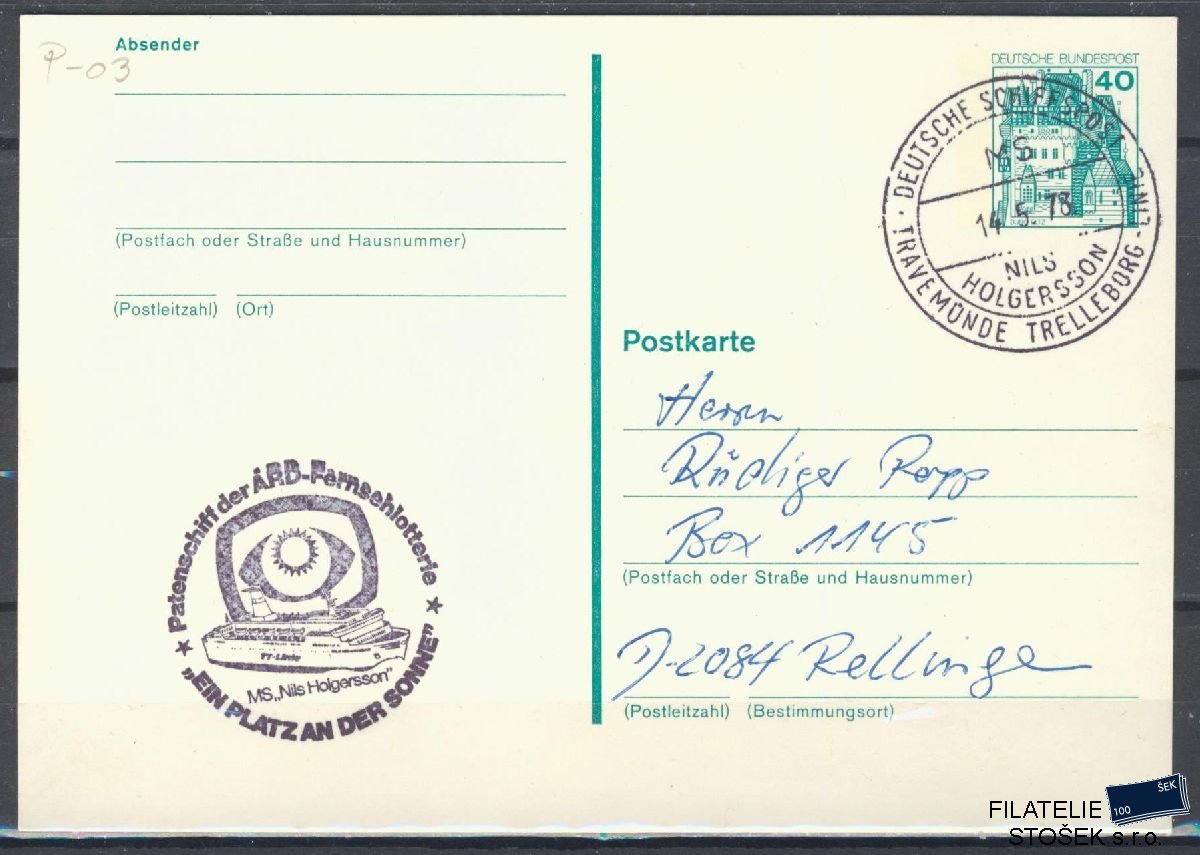 Absender
P-03
(Postfach oder Straße und Hausnummer)
(Postleitzahl) (Ort)
DEUTSCHE BUNDESPOST
40
· DEUTSCHE SCHIFFSPOST
MS
14.5.78
NILS
HOLGERSSON
TRAVEMÜNDE TRELLEBORG ·
Postkarte
Herrn
Rüdiger Rapp
Box 1145
(Postfach oder Straße und Hausnummer)
D-2084 Rellingen
(Postleitzahl) (Bestimmungsort)
★ Patenschiff der ARD-Fernsehlotterie ★
TT-Linie
MS „Nils Holgersson"
„EIN PLATZ AN DER SONNE"
100 ŠEK
FILATELIE
STOŠEK s.r.o.